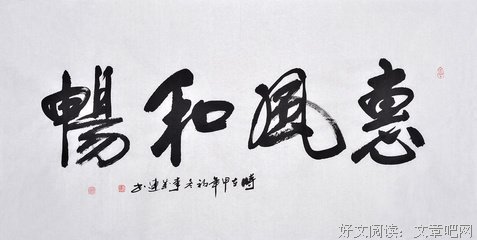 惠風和暢
時在甲午初冬李連书
好文阅读：文章吧网